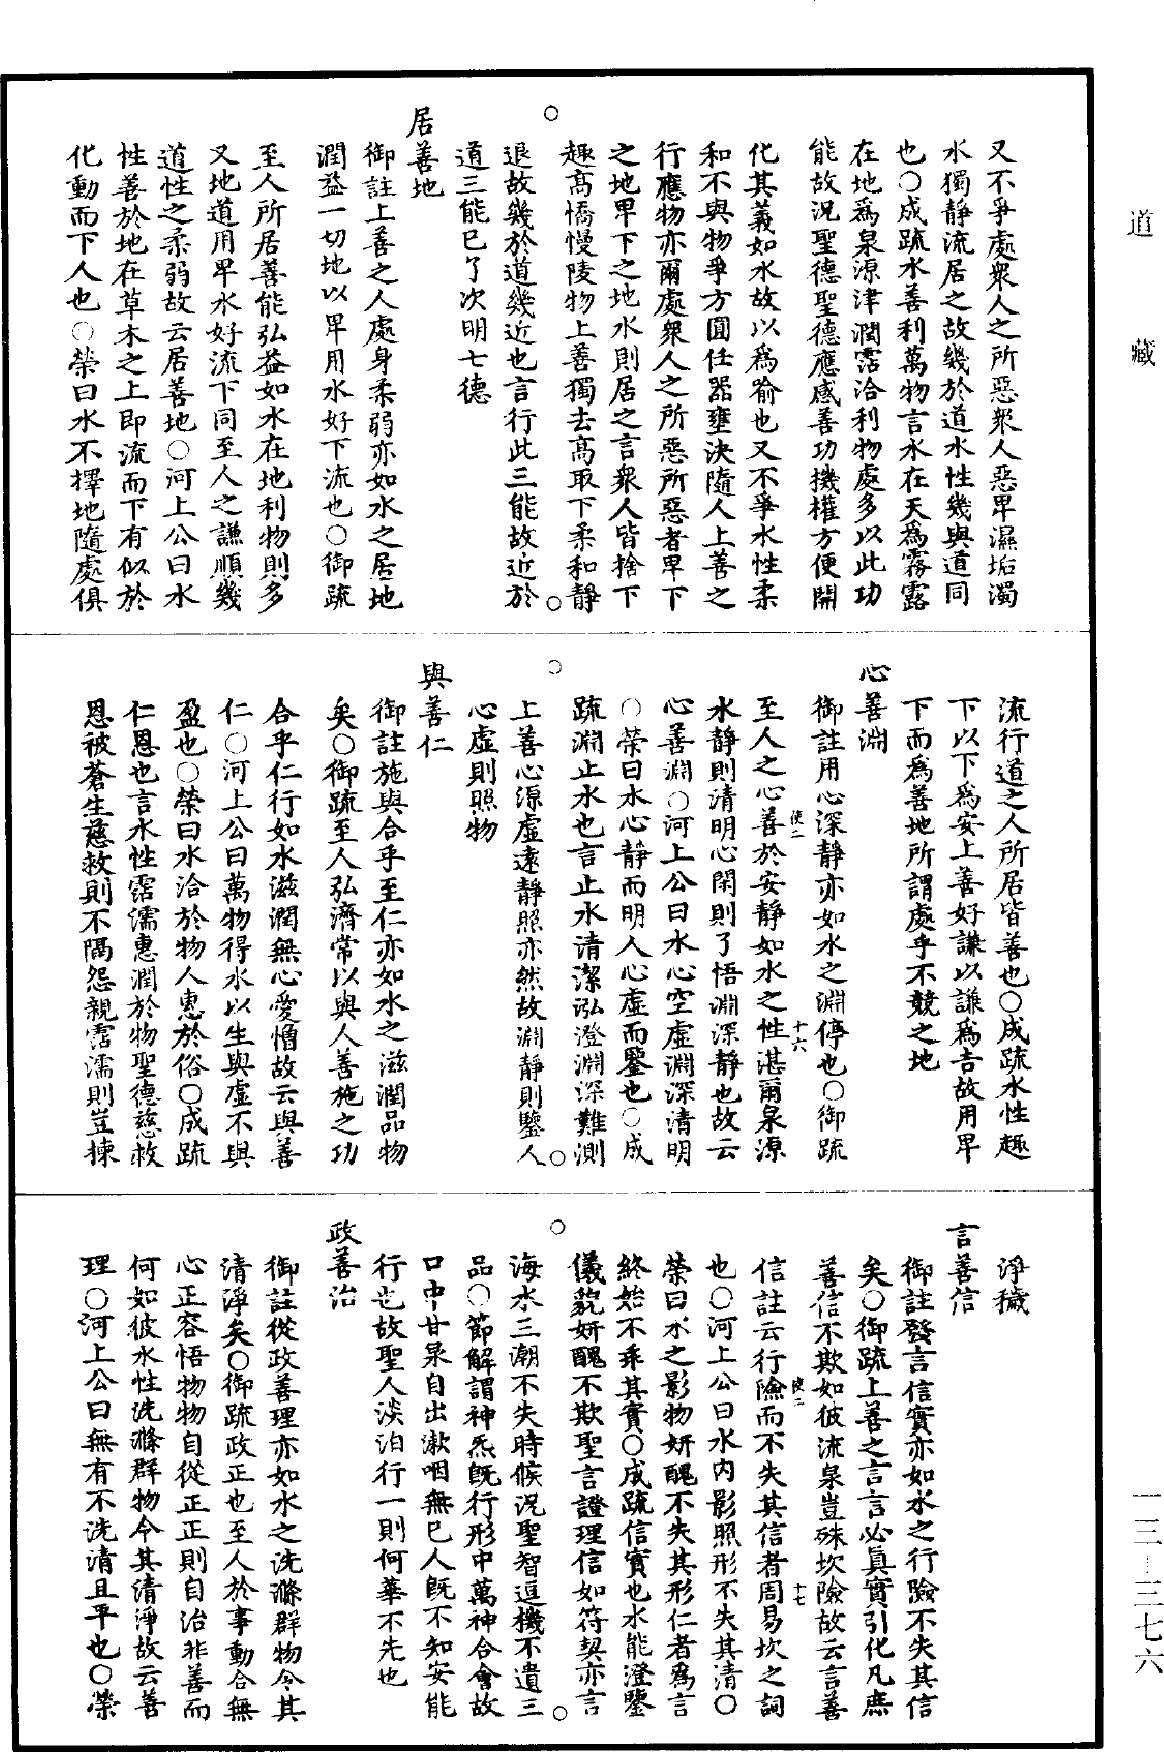 道藏
一三—三七六
又不爭處衆人之所惡衆人惡卑濕垢濁
水獨靜流居之故幾於道水性幾與道同
也○成疏水善利萬物言水在天爲霧露
在地爲泉源津潤霑洽利物處多以此功
能故況聖德聖德應感善功機權方便開
化其義如水故以爲喻也又不爭水性柔
和不與物爭方圓任器壅決隨人上善之
行應物亦爾處衆人之所惡所惡者卑下
之地卑下之地水則居之言衆人皆捨下
趣高憍慢陵物上善獨去高取下柔和靜
退故幾於道幾近也言行此三能故近於
道三能已了次明七德
居善地
御註上善之人處身柔弱亦如水之居地
潤益一切地以卑用水好下流也○御疏
至人所居善能弘益如水在地利物則多
又地道用卑水好流下同至人之謙順幾
道性之柔弱故云居善地○河上公曰水
性善於地在草木之上即流而下有似於
化動而下人也○榮曰水不擇地隨處俱
流行道之人所居皆善也○成疏水性趣
下以下爲安上善好謙以謙爲吉故用卑
下而爲善地所謂處乎不競之地
心善淵
御註用心深靜亦如水之淵停也○御疏
使二 十六
至人之心善於安靜如水之性湛爾泉源
水靜則清明心閑則了悟淵深靜也故云
心善淵○河上公曰水心空虛淵深清明
○榮曰水心靜而明人心虛而鑒也○成
疏淵止水也言止水清潔泓澄淵深難測
上善心源虛遠靜照亦然故淵靜則鑒人
心虛則照物
與善仁
御註施與合乎至仁亦如水之滋潤品物
矣○御疏至人弘濟常以與人善施之功
合乎仁行如水滋潤無心愛憎故云與善
仁○河上公曰萬物得水以生與虛不與
盈也○榮曰水洽於物人惠於俗○成疏
仁恩也言水性霑濡惠潤於物聖德慈救
恩被蒼生慈救則不隔怨親霑濡則豈揀
淨穢
言善信
御註發言信實亦如水之行險不失其信
矣○御疏上善之言言必眞實引化凡庶
善信不欺如彼流泉豈殊坎險故云言善
使二 十七
信註云行險而不失其信者周易坎之詞
也○河上公曰水內影照形不失其清○
榮曰水之影物妍醜不失其形仁者爲言
終始不乖其實○成疏信實也水能澄鑒
儀貌妍醜不欺聖言證理信如符契亦言
海水三潮不失時候況聖智逗機不遺三
品○節解謂神炁既行形中萬神合會故
口中甘泉自出漱咽無已人既不知安能
行也故聖人淡泊行一則何華不先也
政善治
御註從政善理亦如水之洗滌群物令其
清淨矣○御疏政正也至人於事動合無
心正容悟物物自從正正則自治非善而
何如彼水性洗滌群物令其清淨故云善
理○河上公曰無有不洗清且平也○榮